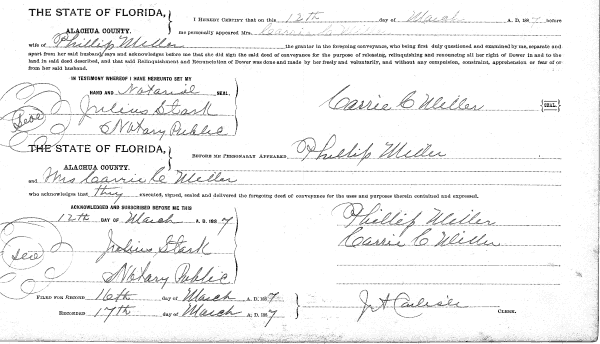 THE STATE OF FLORIDA,
ALACHUA COUNTY.
I HEREBY CERTIFY that on this 12th day of March A. D. 1887, before
me personally appeared Mrs. Carrie C Miller
wife of Phillip Miller the grantor in the foregoing conveyance, who being first duly questioned and examined by me, separate and
apart from her said husband, says and acknowledges before me that she did sign the said deed of conveyance for the purpose of releasing, relinquishing and renouncing all her right of Dower in and to the
land in said deed described, and that said Relinquishment and Renunciation of Dower was done and made by her freely and voluntarily, and without any compulsion, constraint, apprehension or fear of or
from her said husband.
IN TESTIMONY WHEREOF I HAVE HEREUNTO SET MY
HAND AND Notarial SEAL.
Julius Stark
Notary Public
Carrie C Miller
SEAL.
THE STATE OF FLORIDA,
ALACHUA COUNTY.
BEFORE ME PERSONALLY APPEARED Phillip Miller
and Mrs Carrie C Miller
who acknowledges that they executed, signed, sealed and delivered the foregoing deed of conveyance for the uses and purposes therein contained and expressed.
ACKNOWLEDGED AND SUBSCRIBED BEFORE ME THIS
12th DAY OF March A. D. 1887
Julius Stark
Notary Public
Phillip Miller
Carrie C Miller
FILED FOR RECORD 16th day of March A. D. 1887
RECORDED 17th day of March A. D. 1887
J A Carlisle CLERK.